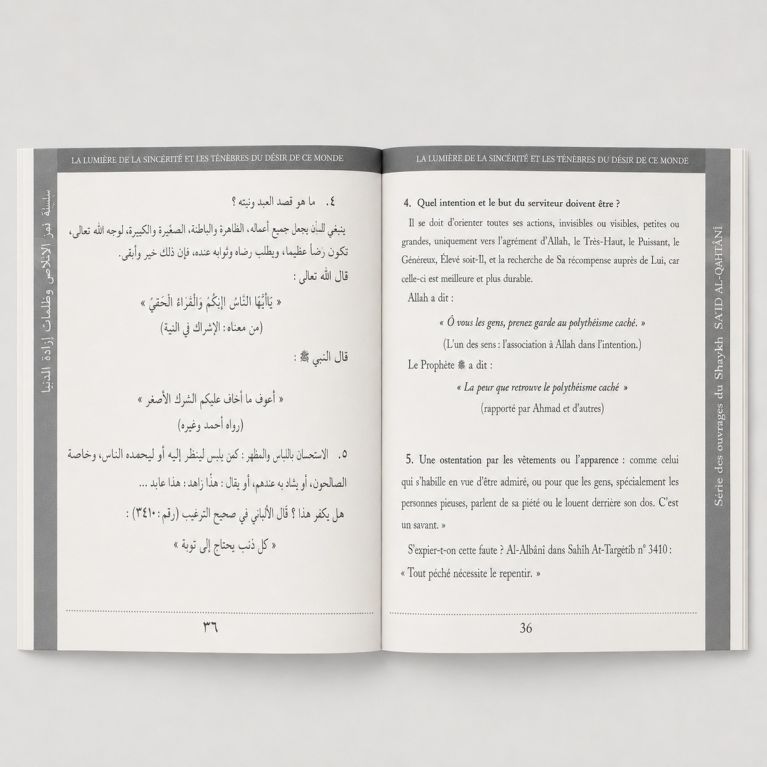 LA LUMIÈRE DE LA SINCÉRITÉ ET LES TÉNÈBRES DU DÉSIR DE CE MONDE
٤. ما هو قصد العبد ونيته ؟
ينبغي للبأن يجعل جميع أعماله، الظاهرة والباطنة، الصغيرة والكبيرة، لوجه الله تعالى،
تكون رضاً عظيما، ويطلب رضاه وثوابه عنده، فإن ذلك خير وأبقى.
قال الله تعالى :
(من معناه : الإشراك في النية)
قال النبي ﷺ :
« أعوف ما أخاف عليكم الشرك الأصغر »
(رواه أحمد وغيره)
٥. الاستحسان باللباس والمظهر : كمن يلبس لينظر إليه أو ليحمده الناس، وخاصة
الصالحون، أو يشاد به عندهم، أو يقال : هذا زاهد : هذا عابد ...
هل يكفر هذا ؟ قال الألباني في صحيح الترغيب (رقم : ٣٤١٠) :
« كل ذنب يحتاج إلى توبة »
٣٦
LA LUMIÈRE DE LA SINCÉRITÉ ET LES TÉNÈBRES DU DÉSIR DE CE MONDE
4. Quel intention et le but du serviteur doivent être ?
Il se doit d'orienter toutes ses actions, invisibles ou visibles, petites ou
grandes, uniquement vers l'agrément d'Allah, le Très-Haut, le Puissant, le
Généreux, Élevé soit-Il, et la recherche de Sa récompense auprès de Lui, car
celle-ci est meilleure et plus durable.
Allah a dit :
« Ô vous les gens, prenez garde au polythéisme caché. »
(L'un des sens : l'association à Allah dans l'intention.)
Le Prophète ﷺ a dit :
« La peur que retrouve le polythéisme caché »
(rapporté par Ahmad et d'autres)
5. Une ostentation par les vêtements ou l'apparence : comme celui
qui s'habille en vue d'être admiré, ou pour que les gens, spécialement les
personnes pieuses, parlent de sa piété ou le louent derrière son dos. C'est
un savant. »
S'expier-t-on cette faute ? Al-Albâni dans Sahîh At-Targétib n° 3410 :
« Tout péché nécessite le repentir. »
36
Série des ouvrages du Shaykh SA'ID AL-QAHTÂNÎ